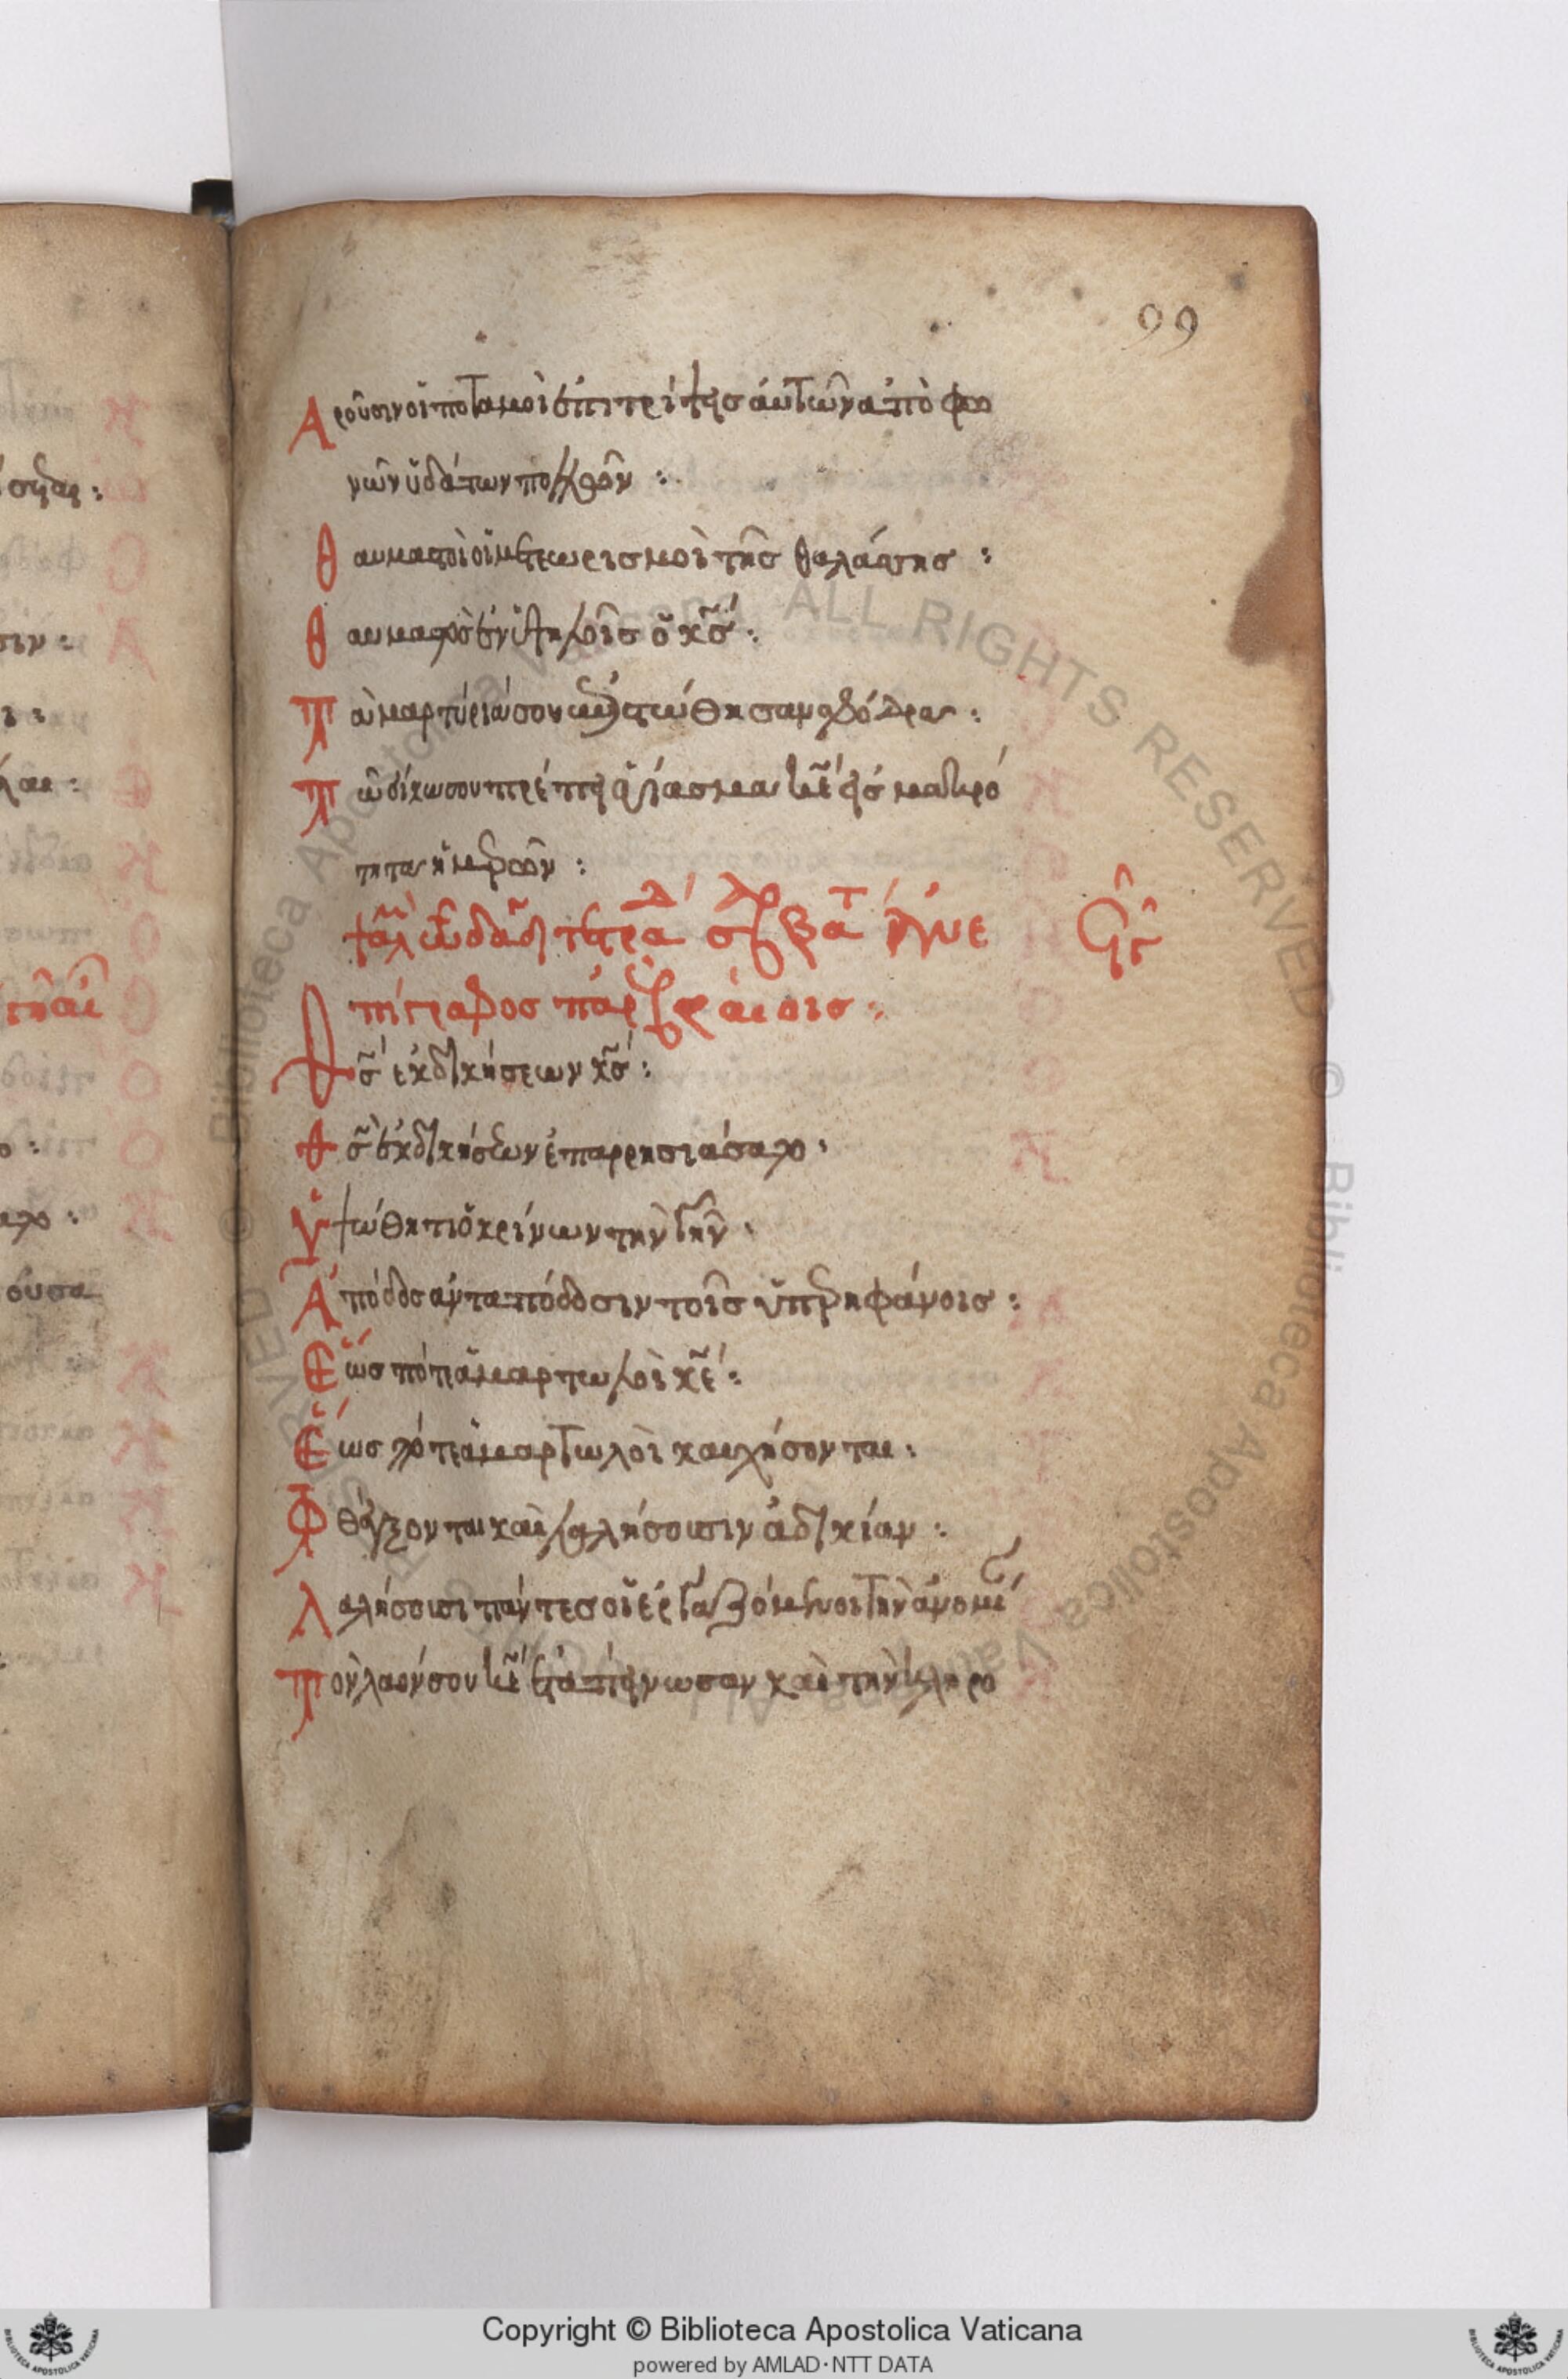 99
Ἀροῦσιν οἱ ποταμοὶ ἐπιτρίψεις αὐτῶν ἀπὸ φω
νῶν ὑδάτων πολλῶν :
Θαυμαστοὶ οἱ μετεωρισμοὶ τῆς θαλάσσης :
Θαυμαστὸς ἐν ὑψηλοῖς ὁ κ̅ς̅ :
Τὰ μαρτύριά σου ἐπιστώθησαν σφόδρα :
Τῷ οἴκῳ σου πρέπει ἁγίασμα κ̅ε̅ εἰς μακρό
τητα ἡμερῶν :
ἐπίγραφος παρ' Ἑβραίοις :
Θ̅ς̅ ἐκδικήσεων κ̅ς̅ :
Θ̅ς̅ ἐκδικήσεων ἐπαρρησιάσατο :
Ὑψώθητι ὁ κρίνων τὴν γῆν :
Ἀπόδος ἀνταπόδοσιν τοῖς ὑπερηφάνοις :
Ἕως πότε ἁμαρτωλοὶ κ̅ε̅ :
Ἕως πότε ἁμαρτωλοὶ καυχήσονται :
Φθέγξονται καὶ λαλήσουσιν ἀδικίαν :
Λαλήσουσι πάντες οἱ ἐργαζόμενοι τὴν ἀνομί
Τὸν λαόν σου κ̅ε̅ ἐταπείνωσαν καὶ τὴν κληρο
© Biblioteca Apostolica Vaticana ALL RIGHTS RESERVED
Copyright © Biblioteca Apostolica Vaticana
powered by AMLAD·NTT DATA